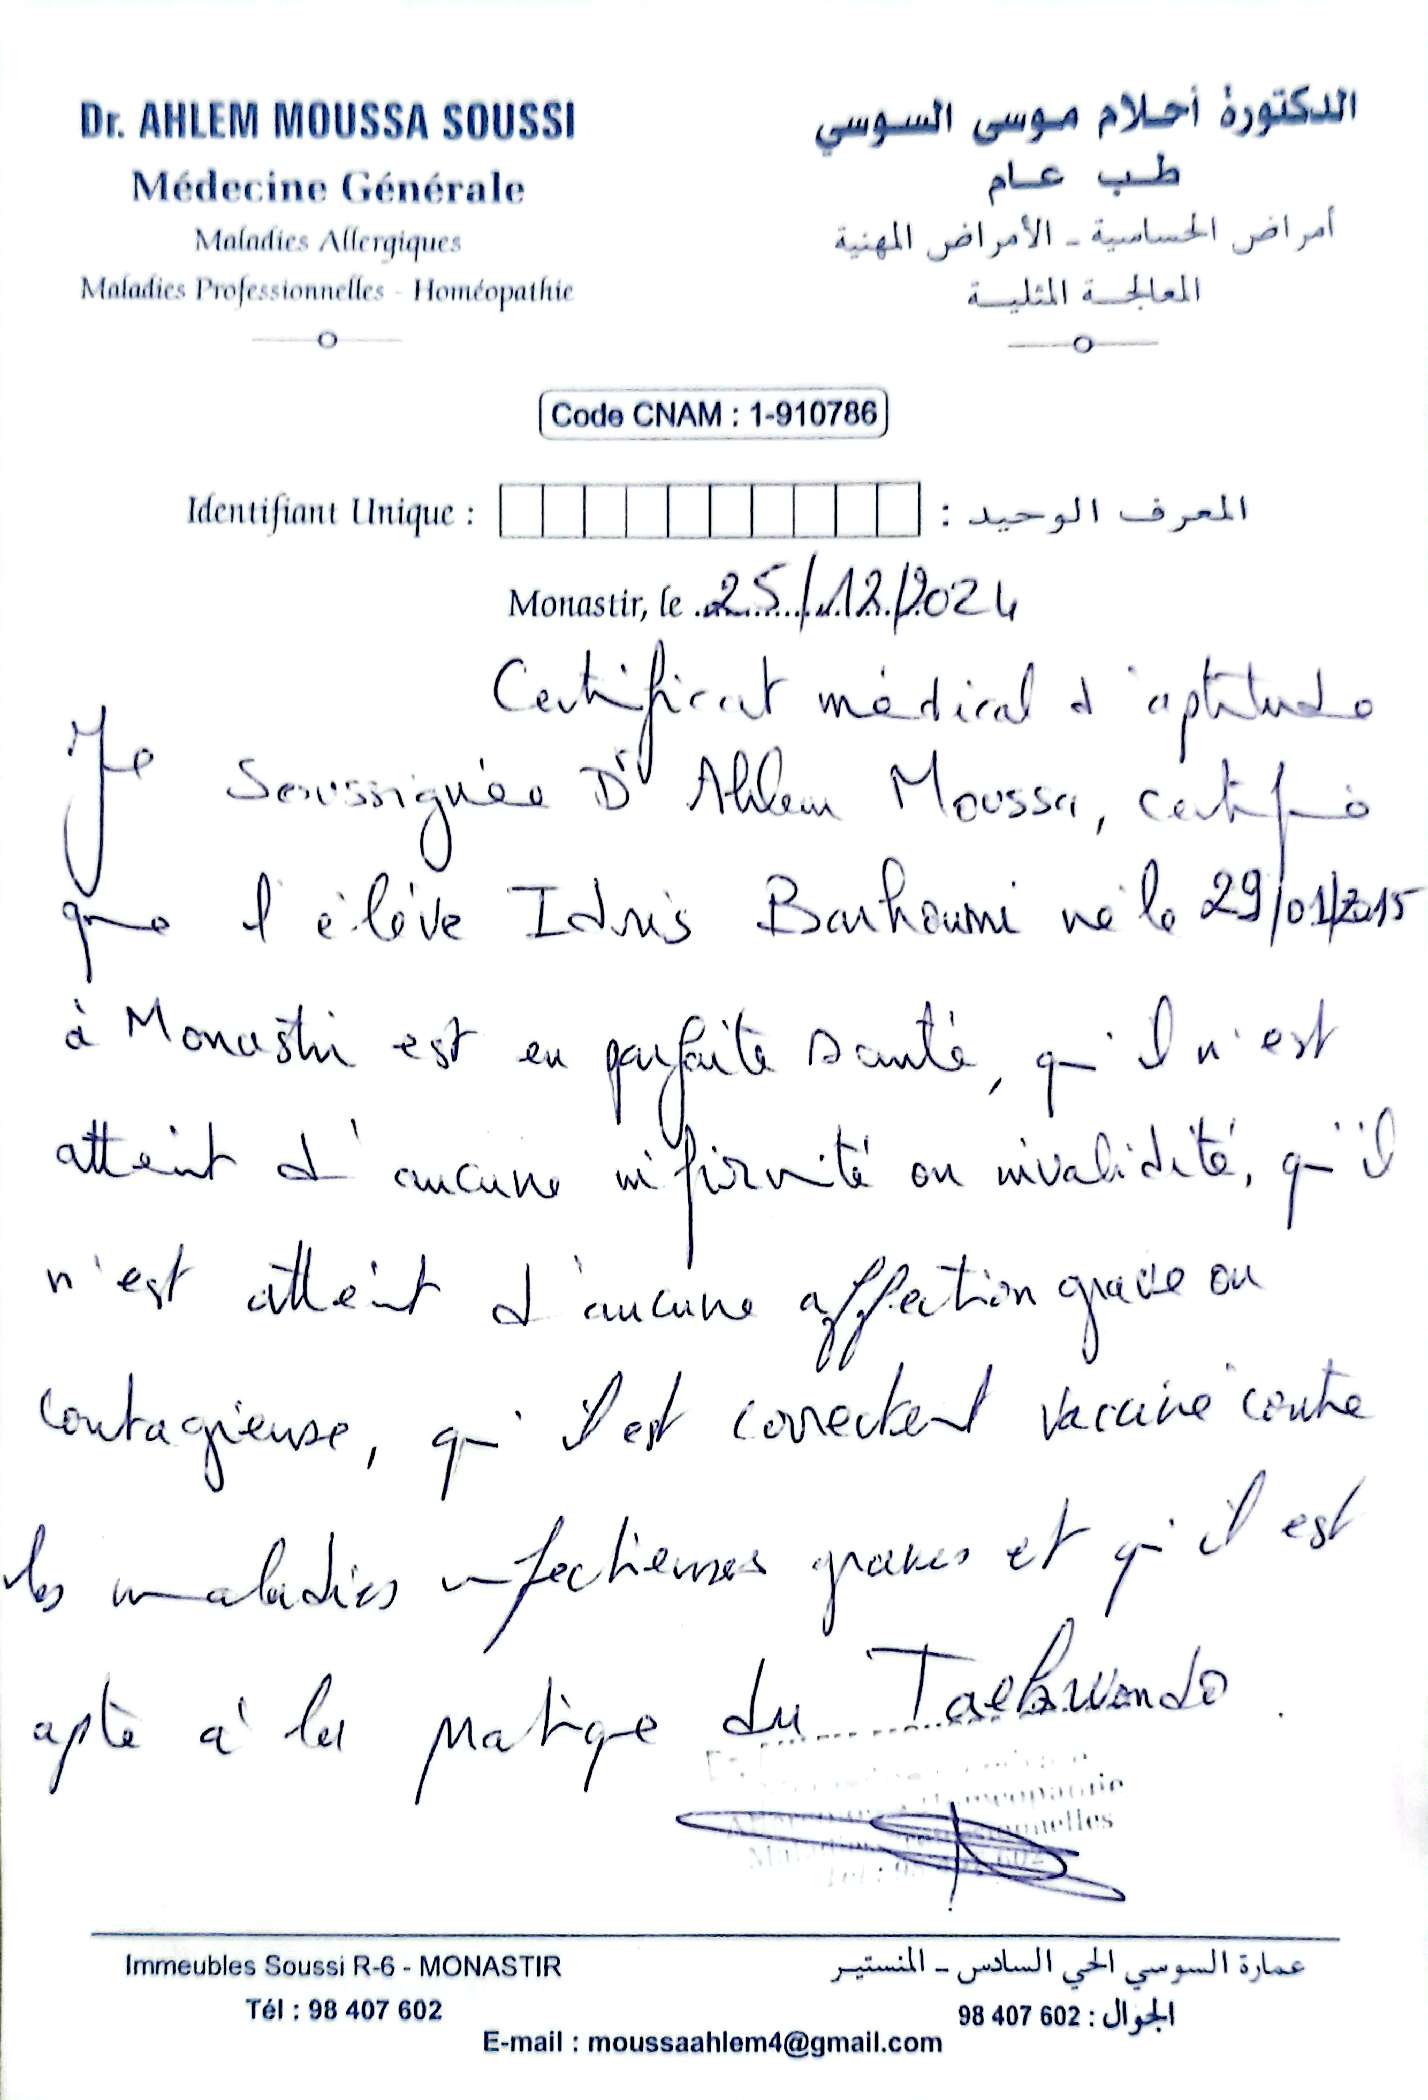 Dr. AHLEM MOUSSA SOUSSI
Médecine Générale
Maladies Allergiques
Maladies Professionnelles - Homéopathie
الدكتورة أحلام موسى السوسي
طب عام
أمراض الحساسية - الأمراض المهنية
المعالجة المثلية
Code CNAM : 1-910786
Identifiant Unique : المعرف الوحيد :
Monastir, le 25/12/2024
Certificat médical d'aptitude
Je soussignée Dr Ahlem Moussa, certifie
que l'élève Idris Barhoumi né le 29/01/2015
à Monastir est en parfaite santé, qu'il n'est
atteint d'aucune infirmité ou invalidité, qu'il
n'est atteint d'aucune affection grave ou
contagieuse, qu'il est correctent vacciné contre
les maladies infectieuses graves et qu'il est
apte à la pratique du Taekwondo.
Tél : 98 407 602
Immeubles Soussi R-6 - MONASTIR
Tél : 98 407 602
عمارة السوسي الحي السادس - المنستير
الجوال : 602 407 98
E-mail : moussaahlem4@gmail.com